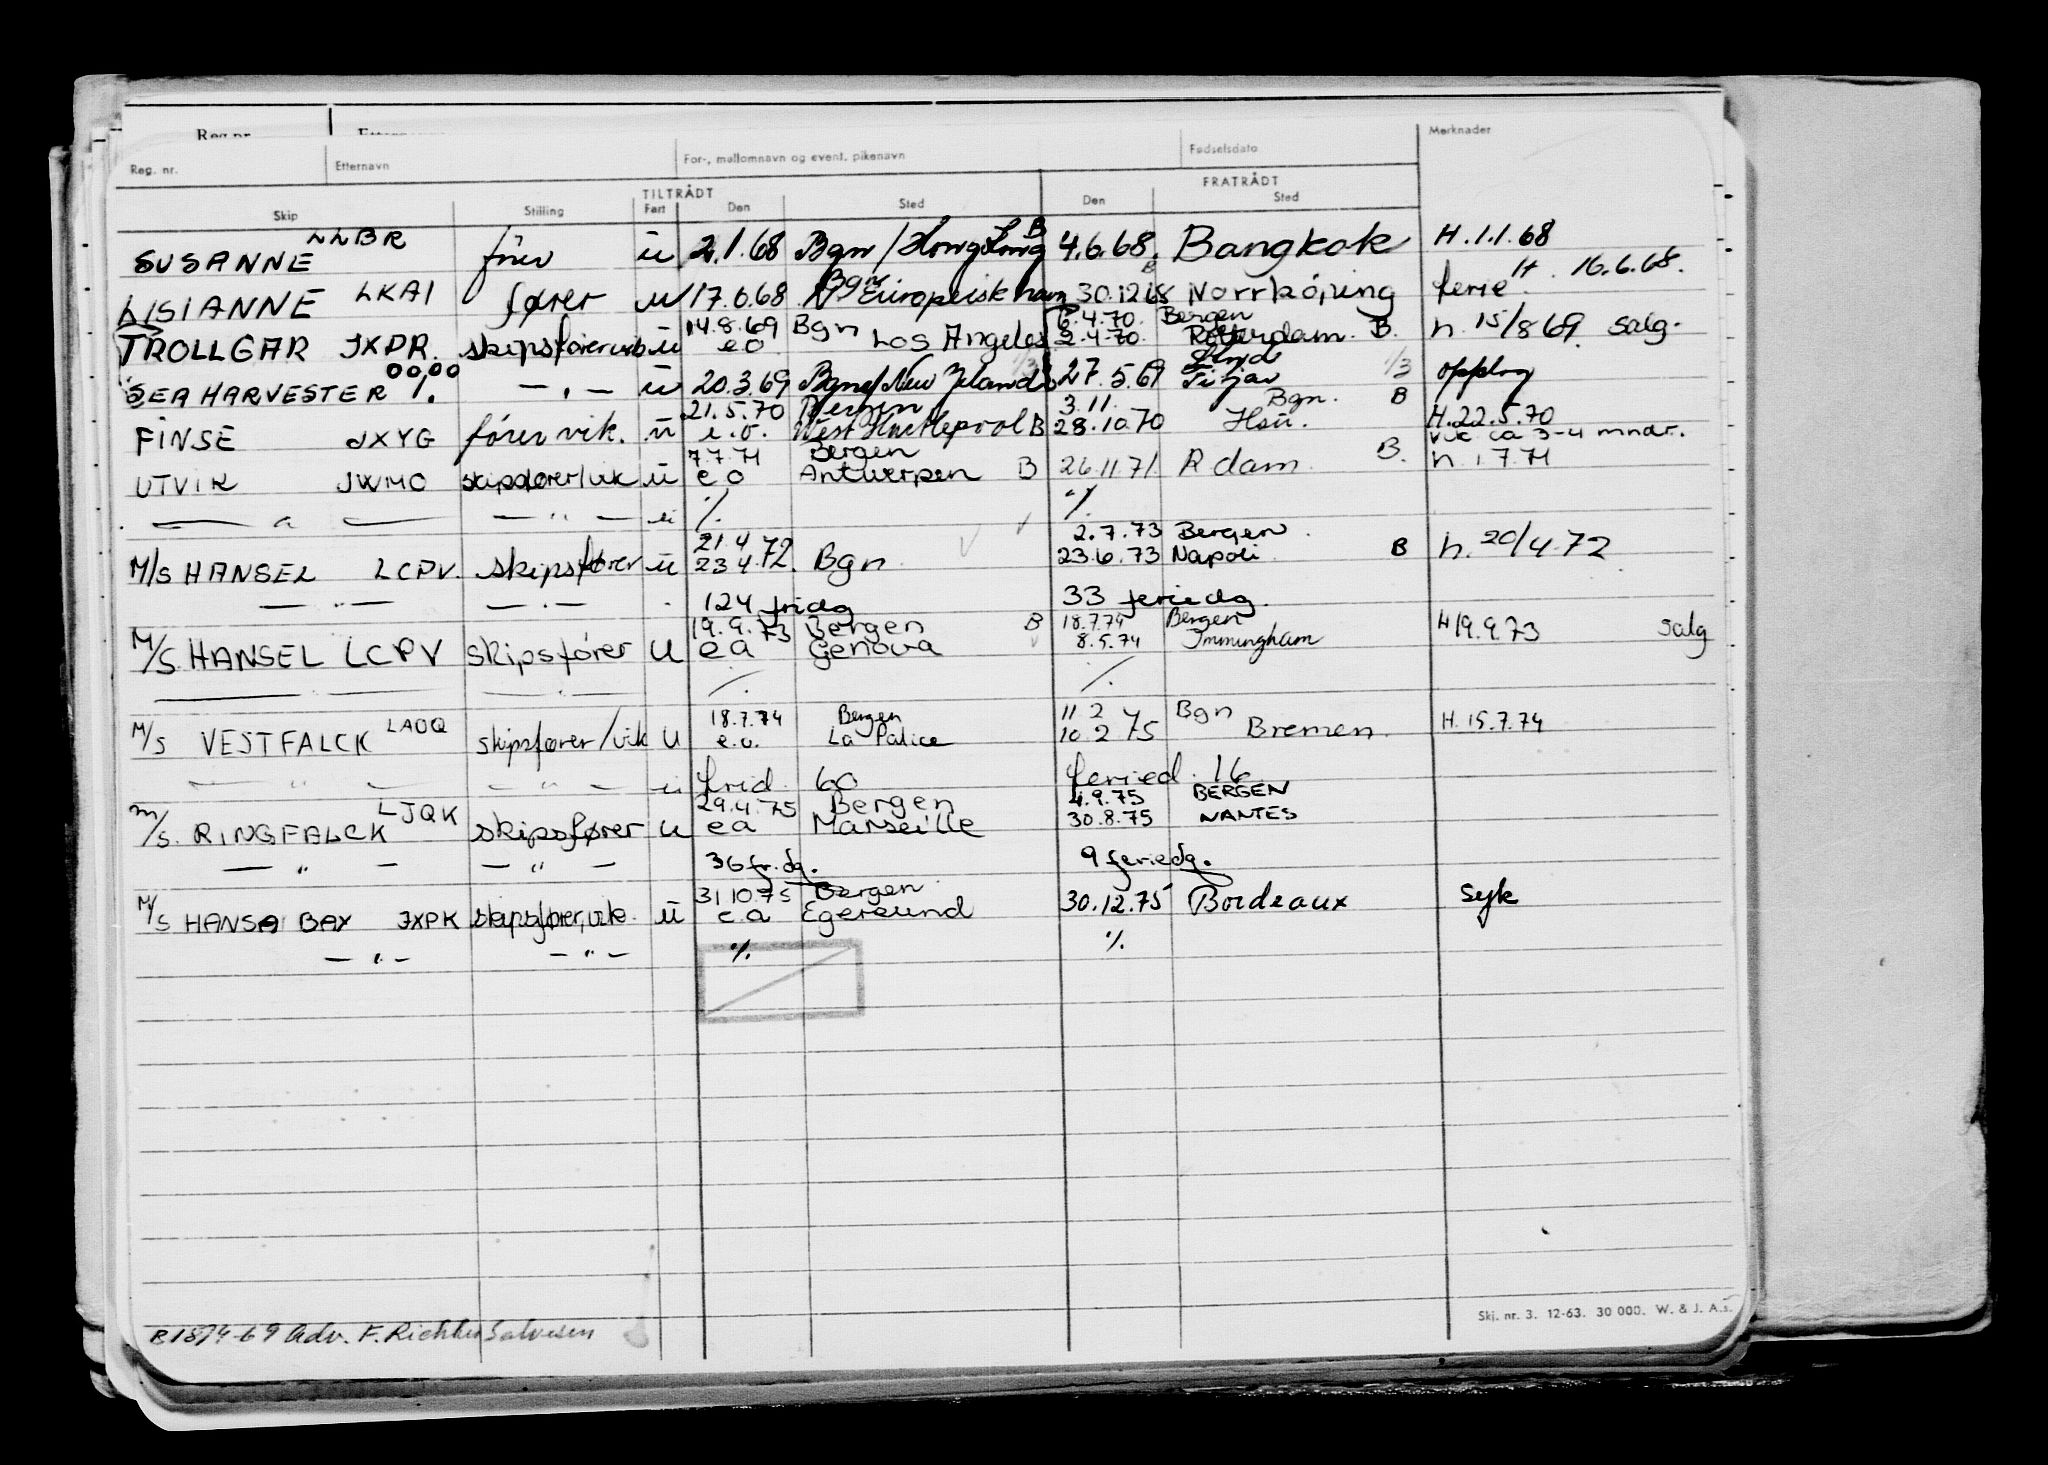 Reg. nr.
Reg. nr. Etternavn For-, mellomnavn og event. pikenavn Fødselsdato Merknader
TILTRÅDT FRATRÅDT
Skip Stilling Fart Den Sted Den Sted
SUSANNE LLBR fører u 2.1.68 Bgn / Hong Kong B 4.6.68. Bangkok H.1.1.68
LISIANNE LKAI fører u 17.6.68 Bgn Europeisk havn 30.12.68 B Norrköping ferie H. 16.6.68.
14.8.69 Bgn 6.4.70. Bergen
TROLLGAR JXPR. skipsfører vik u e o Los Angeles 2.4.70. Rotterdam. B. h. 15/8 69. salg.
SEA HARVESTER OOOO %. — " — u 20.3.69 Bgn/New Zeland 1/3 27.5.69 Fitjar 1/3 opplag
21.5.70 Bergen 3.11. Bgn. B H.22.5.70
FINSE JXYG fører vik. u e.o. West Hartlepool B 28.10.70 vik ca 3-4 mndr.
7.7.71 Bergen
UTVIK JWMO skipsfører/vik u e o Antwerpen B 26.11.71. R dam. B. h. 1 7 71
— " — — " — u %. %.
21.4 72. 2.7.73 Bergen.
M/S HANSEL LCPV. skipsfører u 23 4 Bgn 23.6.73 Napoli B h. 20/4 72
— " — — " — 124 fridg 33 feriedg.
19.9.73 Bergen B 18.7.74 Bergen
M/S. HANSEL LCPV skipsfører u e a Genova 8.5.74 Immingham H 19.9.73 salg
— — — " — %. %.
18.7.74 Bergen 11 2 Bgn
M/S VESTFALCK LAOQ skipsfører/vik u e.o. La Palice 10.2 75 Bremen. H. 15.7.74
— " — — " — u frid. 60 feried. 16
29.4.75 Bergen 4.9.75 BERGEN
m/s. RINGFALCK LJQK skipsfører u e a Marseille 30.8.75 NANTES
— " — — " — 36 fr.dg. 9 feriedg.
31 10.75 Bergen
M/S HANSA BAY JXPK skipsfører, vik. u e a Egersund 30.12.75 Bordeaux syk
— " — — " — %. %.
Skj. nr. 3. 12-63. 30 000. W. & J. A.s.
R1874-69 Adv. F. Richter Salvesen